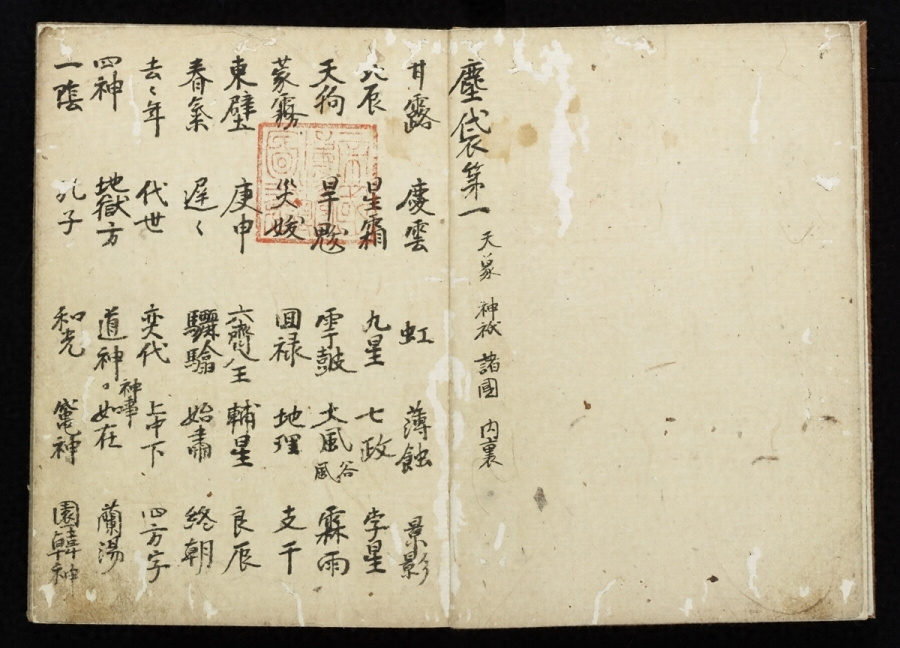 塵袋第一 天象 神祇 諸國 内裏
甘露 慶雲 虹 薄蝕 景影
六辰 星霜 九星 七政 孛星
天狗 旱魃 雩鼓 大風 谷風 霖雨
蒙霧 災妖 回禄 地理 支干
東壁 庚申 六齋 輔星 良辰
春氣 遅〻 驪 始 終朝
去〻年 代世 奕代 上中下 四方字
四神 地獄方 道神 神事 如在 蘭湯
一陰 孔子 和光 竈神 園韓神